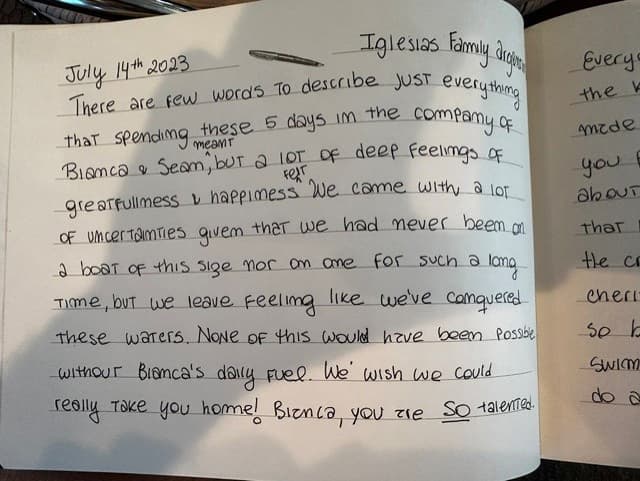 July 14th 2023
Iglesias Family
There are few words to describe just everything
that spending these 5 days in the company of
meant
Bianca & Sean, but a lot of deep feelings of
felt
greatfullness & happiness We came with a lot
of uncertainties given that we had never been on
a boat of this size nor on one for such a long
time, but we leave feeling like we've conquered
these waters. None of this would have been possible
without Bianca's daily fuel. We wish we could
really take you home! Bianca, you are SO talented.
the
made
you
about
that
so
do